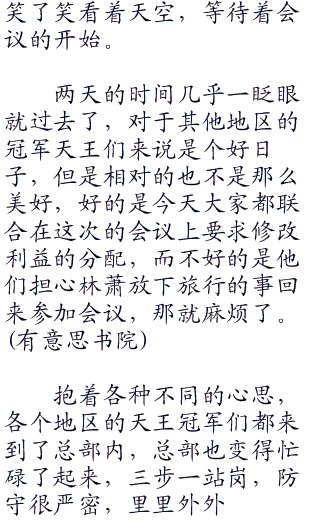 笑了笑看着天空，等待着会
议的开始。
两天的时间几乎一眨眼
就过去了，对于其他地区的
冠军天王们来说是个好日
子，但是相对的也不是那么
美好，好的是今天大家都联
合在这次的会议上要求修改
利益的分配，而不好的是他
们担心林萧放下旅行的事回
来参加会议，那就麻烦了。
(有意思书院)
抱着各种不同的心思，
各个地区的天王冠军们都来
到了总部内，总部也变得忙
碌了起来，三步一站岗，防
守很严密，里里外外